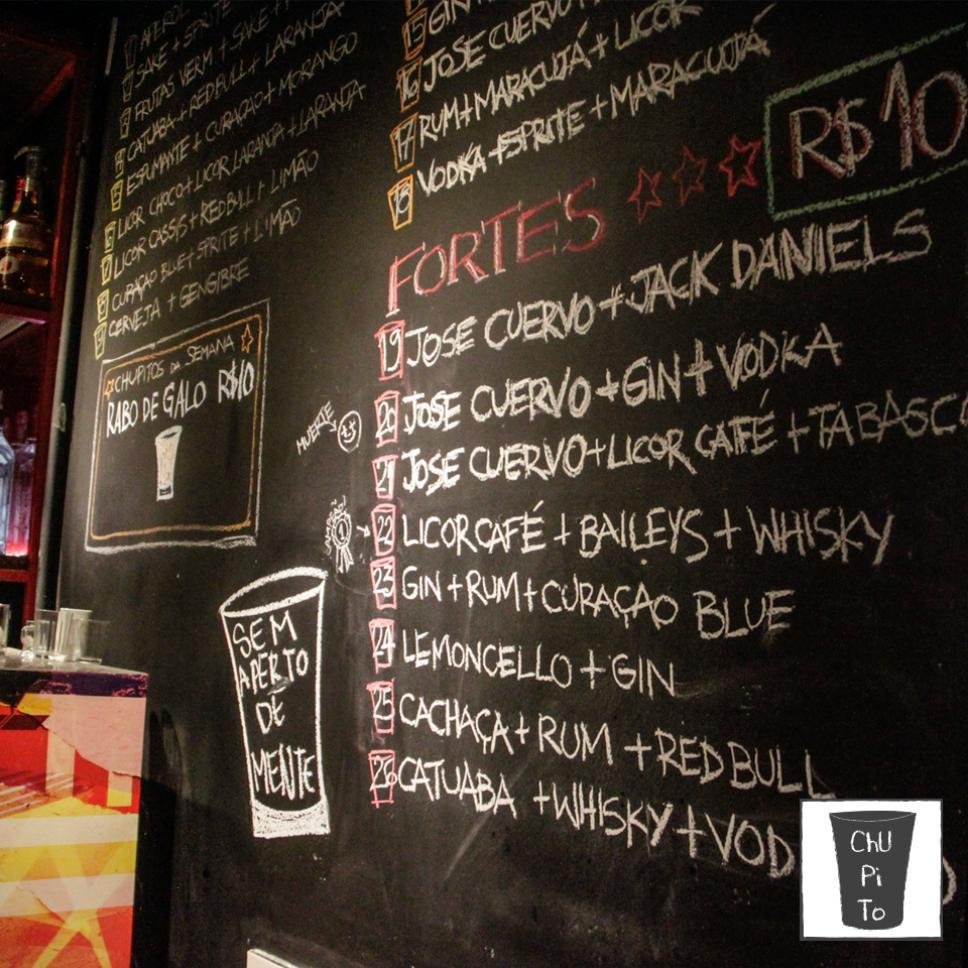 APEROL
SAKE + SPRITE
FRUTAS VERM + SAKE +
CATUABA + REDBULL + LARANJA
ESPUMANTE + CURAÇAO + MORANGO
LICOR CHOCO + LICOR LARANJA + LARANJA
LICOR CASSIS + RED BULL + LIMÃO
CURAÇAO BLUE + SPRITE + LIMÃO
9 CERVEJA + GENGIBRE
CHUPITOS DA SEMANA
RABO DE GALO R$10
15 GIN +
16 JOSE CUERVO
17 RUM + MARACUJÁ + LICOR
18 VODKA + SPRITE + MARACUJÁ
FORTES R$10
19 JOSE CUERVO + JACK DANIELS
20 JOSE CUERVO + GIN + VODKA
MUERTE
21 JOSE CUERVO + LICOR CAFÉ + TABASCO
22 LICOR CAFÉ + BAILEYS + WHISKY
23 GIN + RUM + CURAÇAO BLUE
24 LEMONCELLO + GIN
25 CACHAÇA + RUM + RED BULL
26 CATUABA + WHISKY + VOD
SEM
APERTO
DE
MENTE
ChU
Pi
To